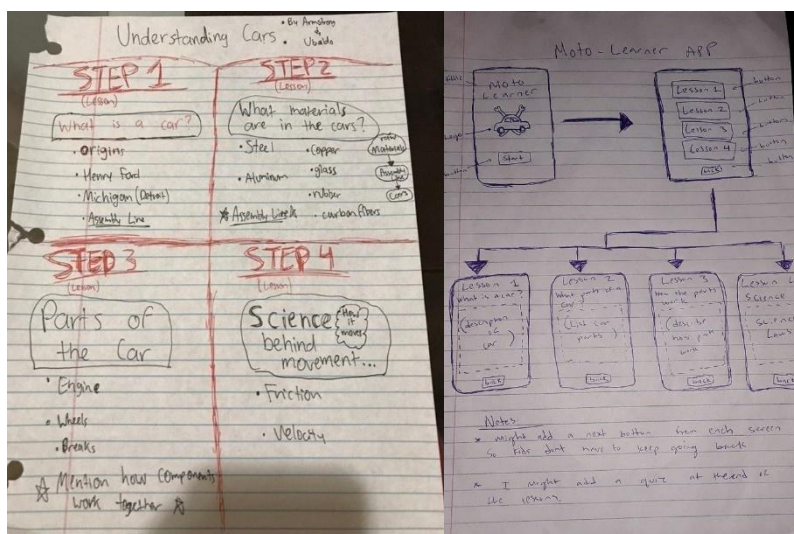 Understanding Cars
• By Armstrong
& Ubaldo
STEP 1
(Lesson)
What is a car?
• Origins
• Henry Ford
• Michigan (Detroit)
• Assembly Line
STEP 2
(Lesson)
What materials
are in the cars?
• Steel
• Aluminum
• Copper
• glass
• rubber
• carbon fibers
☆ Assembly Line ☆
raw
Materials
Assembly
Line
Cars
STEP 3
(Lesson)
Parts of
the Car
• Engine
• Wheels
• Breaks
☆ Mention how components
work together ☆
STEP 4
(Lesson)
Science
behind
movement...
How
it
moves
• Friction
• Velocity
Moto-Learner APP
Moto
Learner
Start
button
Lesson 1
Lesson 2
Lesson 3
Lesson 4
back
button
button
button
button
button
Lesson 1
What is a car?
(description
of
car)
back
Lesson 2
What parts
car
(List car
parts)
back
Lesson 3
how the parts
work
how part
work
back
Lesson
Science
Science
Laws
back
Notes
* might add a next button from each screen
so kids dont have to keep going back
* I might add a quiz at the end of
the lesson